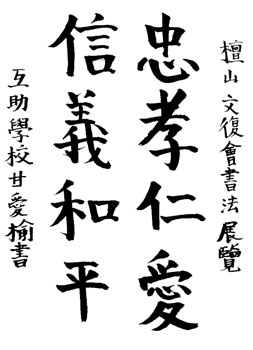 檀山文復會書法展覽
忠孝仁愛
信義和平
互助學校甘愛榆書